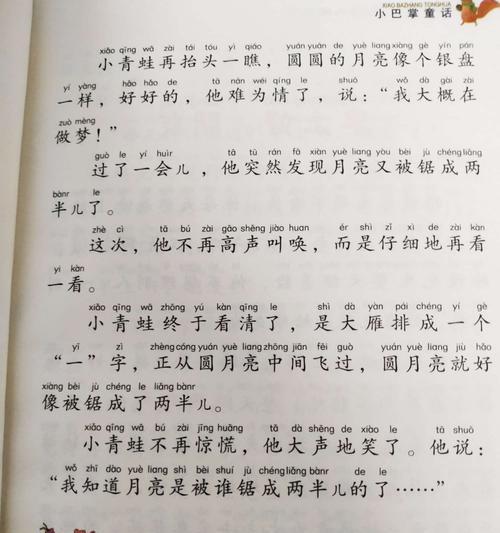 XIAO BAZHANG TONGHUA
小巴掌童话
xiǎo qīng wā zài tái tóu yì qiáo yuán yuán de yuè liang xiàng gè yín pán
小青蛙再抬头一瞧，圆圆的月亮像个银盘
yí yàng hǎo hǎo de tā nán wéi qíng le shuō wǒ dà gài zài
一样，好好的，他难为情了，说：“我大概在
zuò mèng
做梦！”
guò le yí huìr tā tū rán fā xiàn yuè liang yòu bèi jù chéng liǎng
过了一会儿，他突然发现月亮又被锯成两
bànr le
半儿了。
zhè cì tā bú zài gāo shēng jiào huan ér shì zǐ xì de zài kàn
这次，他不再高声叫唤，而是仔细地再看
yi kàn
一看。
xiǎo qīng wā zhōng yú kàn qīng le shì dà yàn pái chéng yí gè
小青蛙终于看清了，是大雁排成一个
yī zì zhèng cóng yuán yuè liang zhōng jiān fēi guò yuán yuè liang jiù hǎo
“一”字，正从圆月亮中间飞过，圆月亮就好
xiàng bèi jù chéng le liǎng bànr
像被锯成了两半儿。
xiǎo qīng wā bú zài jīng huāng tā dà shēng de xiào le tā shuō
小青蛙不再惊慌，他大声地笑了。他说：
wǒ zhī dào yuè liang shì bèi shuí jù chéng liǎng bànr de le
“我知道月亮是被谁锯成两半儿的了……”